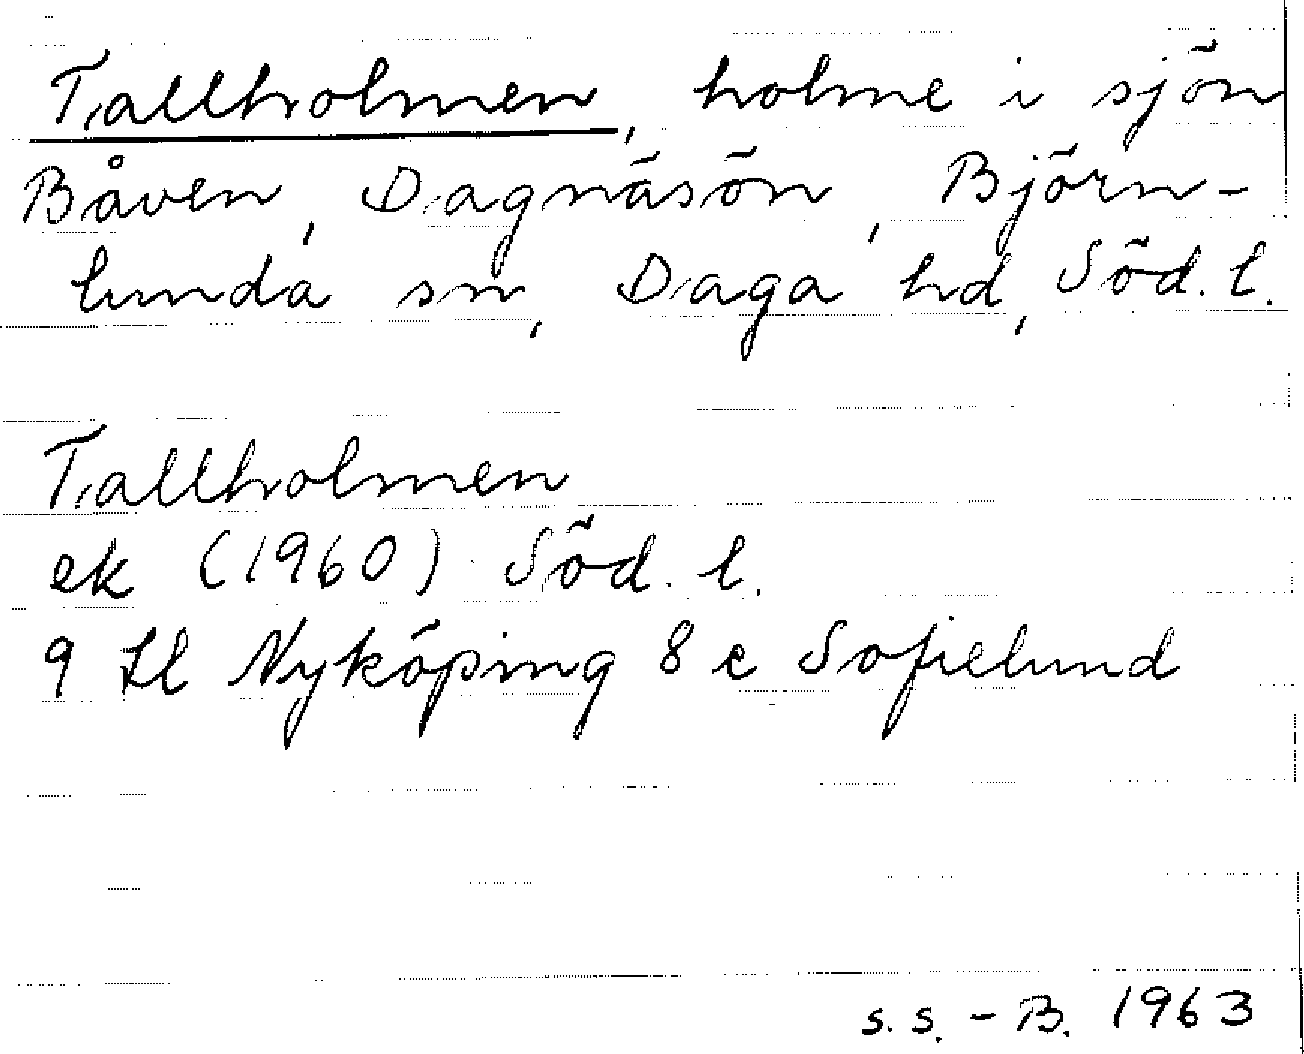 Tallholmen, holme i sjön
Båven, Dagnäsön, Björn-
lunda sn, Daga hd, Söd. l.
Tallholmen
ek (1960) Söd. l.
9 Nyköping 8 c Sofielund
s. s. - B. 1963